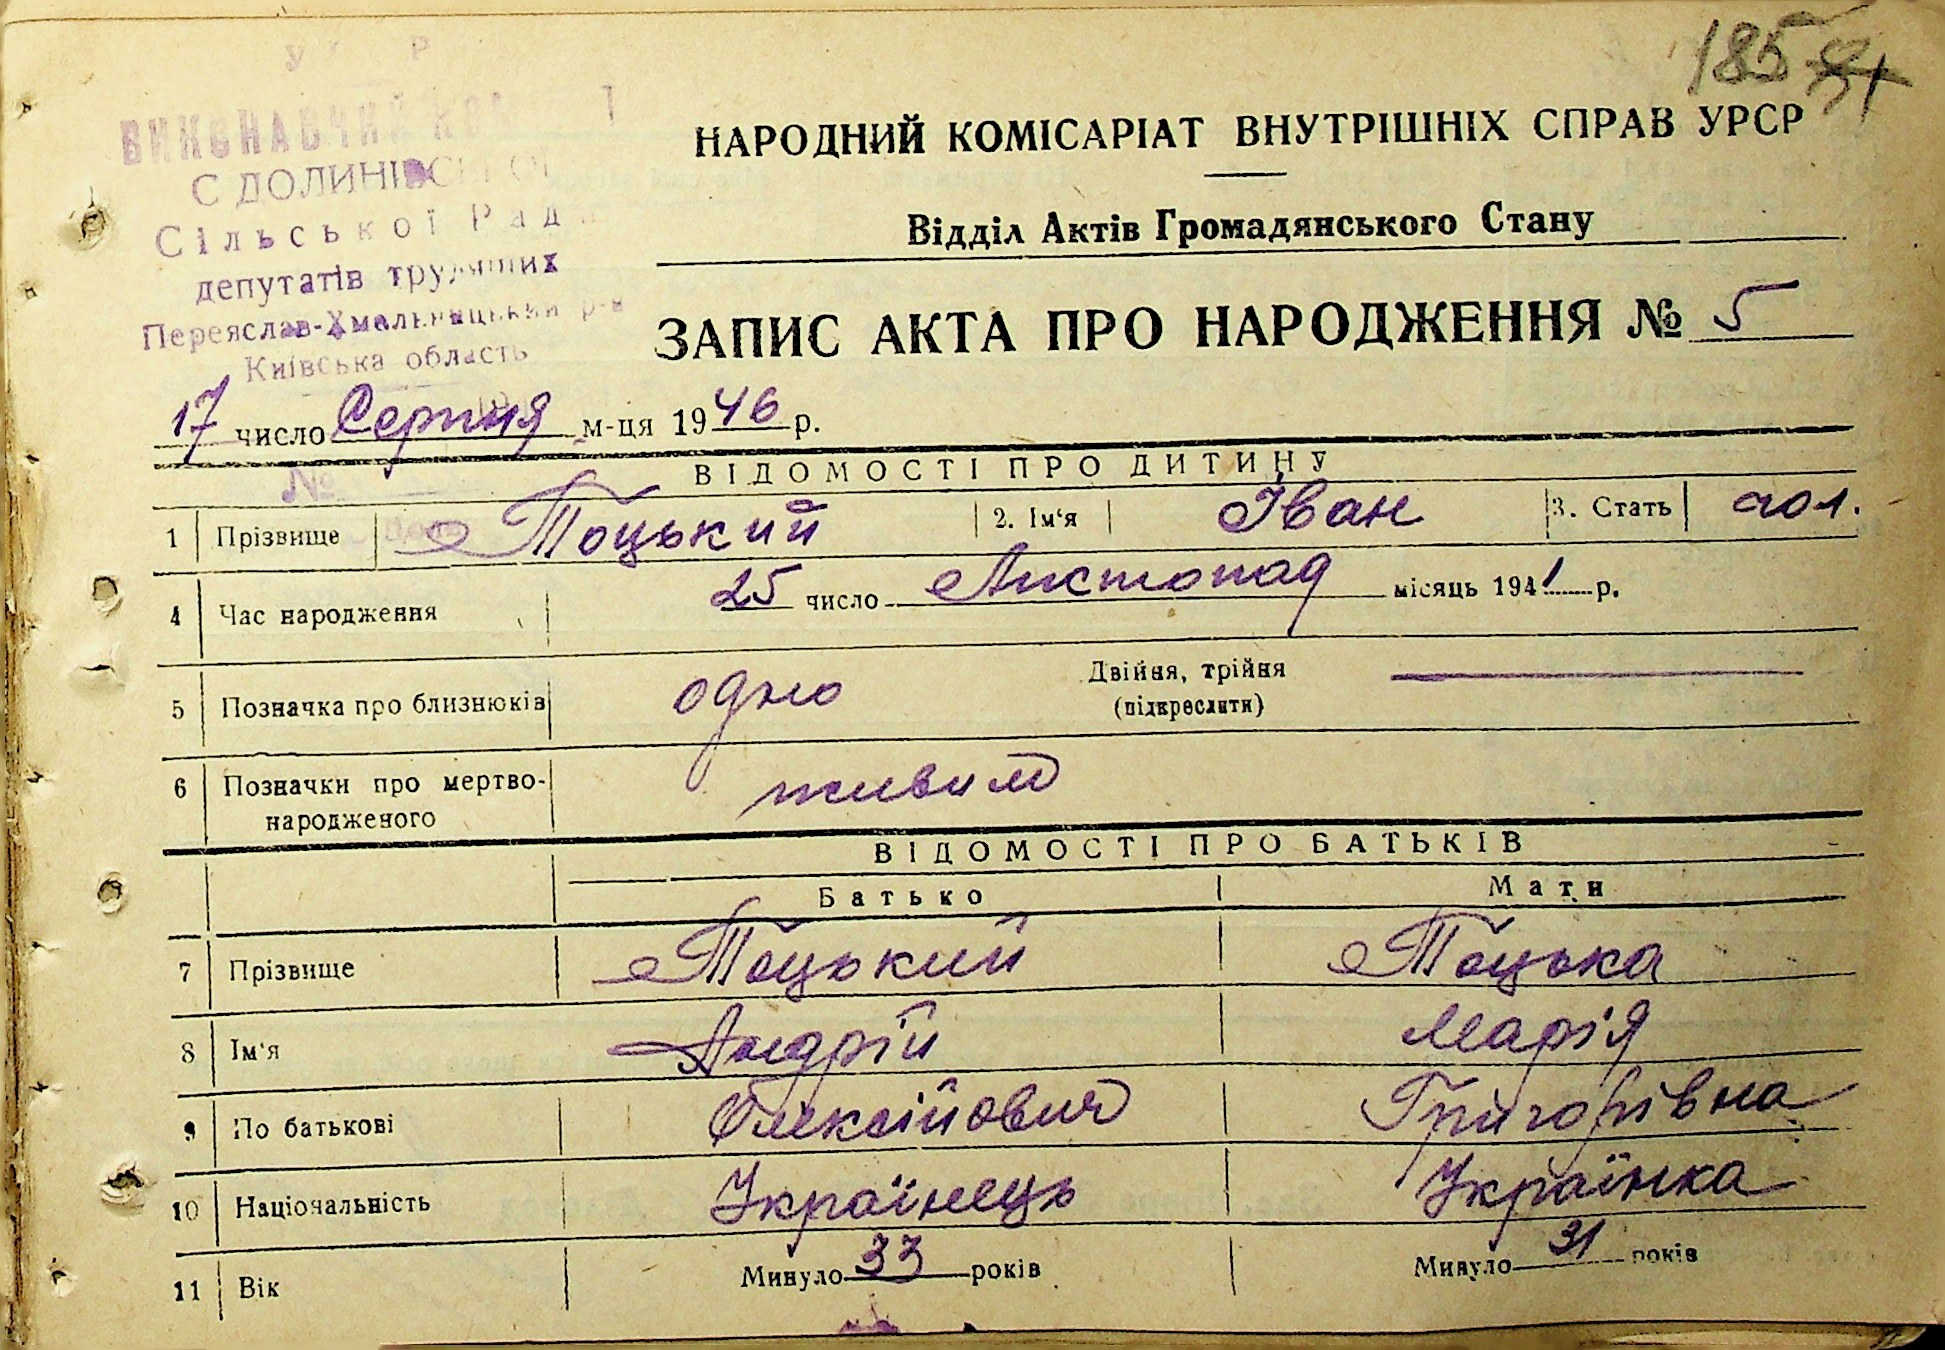 185
У Р
ВИКОНАВЧИЙ КОМ Т
С ДОЛИНІВСЬКОЇ
Сільської Рад
депутатів трудящих
Переяслав-Хмельницький р-н
Київська область
НАРОДНИЙ КОМІСАРІАТ ВНУТРІШНІХ СПРАВ УРСР
Відділ Актів Громадянського Стану
ЗАПИС АКТА ПРО НАРОДЖЕННЯ № 5
17 число Серпня м-ця 1946 р.
№
ВІДОМОСТІ ПРО ДИТИНУ
1 Прізвище Тоцький 2. Ім'я Іван 3. Стать чол.
4 Час народження 25 число Листопад місяць 1941 р.
5 Позначка про близнюків одно Двійня, трійня
(підкреслити)
6 Позначки про мертво-
народженого живим
ВІДОМОСТІ ПРО БАТЬКІВ
Батько Мати
7 Прізвище Тоцький Тоцька
8 Ім'я Андрій Марія
9 По батькові Олексійович Григорівна
10 Національність Українець Українка
11 Вік Минуло 33 років Минуло 31 років